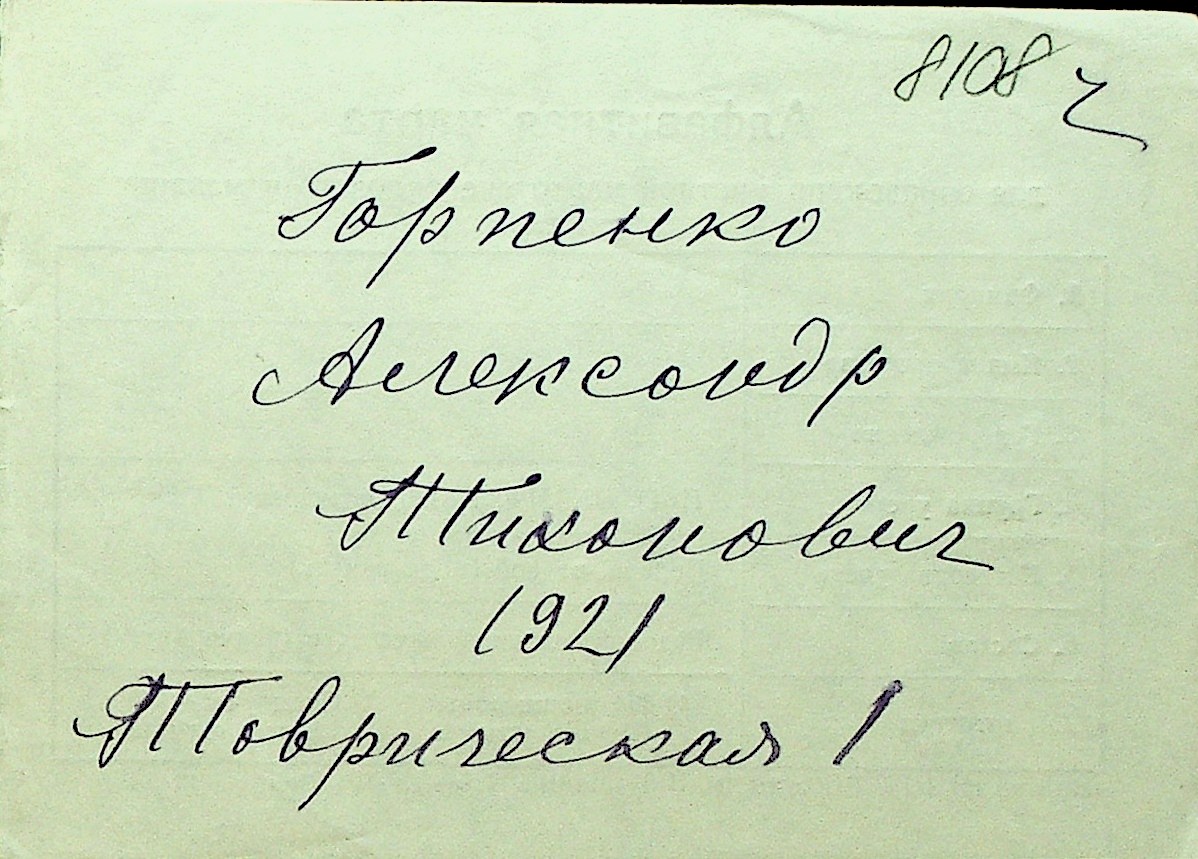 8108 ч
Горпенко
Александр
Тихонович
1921
Товрическая 1